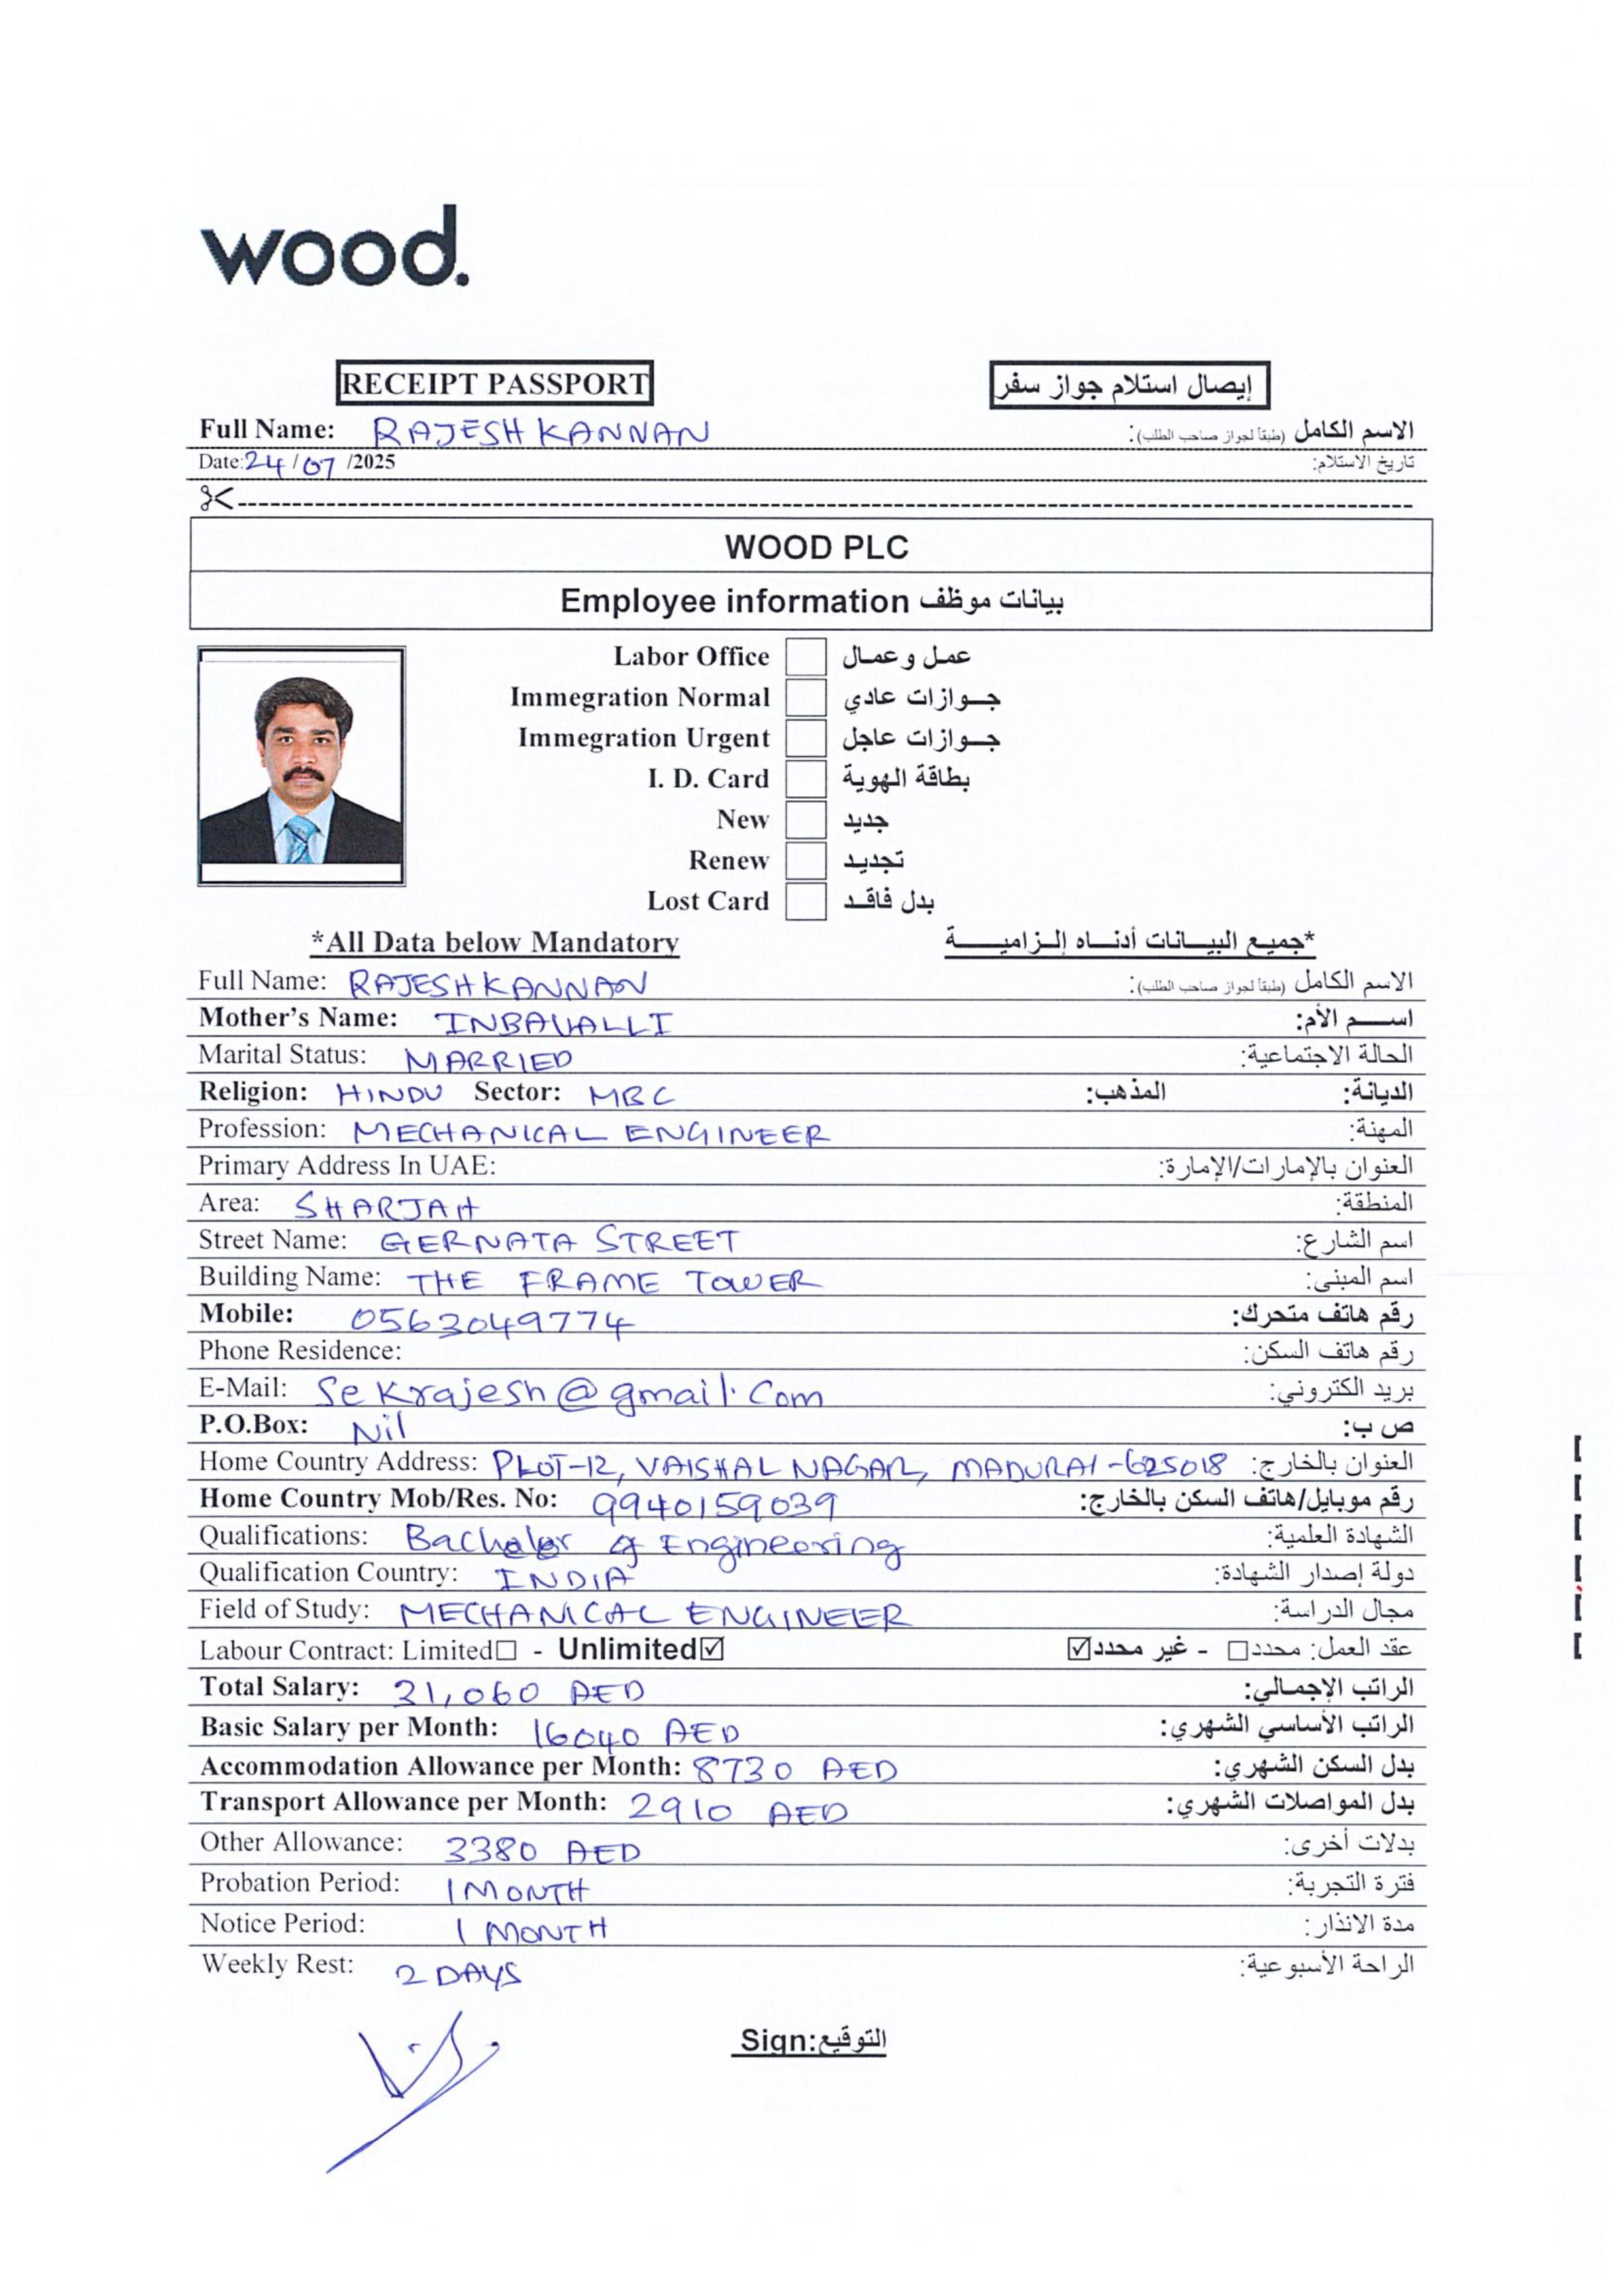 wood.
RECEIPT PASSPORT إيصال استلام جواز سفر
Full Name: RAJESH KANNAN الاسم الكامل (طبقا لجواز صاحب الطلب):
Date:24/07/2025 تاريخ الاستلام:
WOOD PLC
Employee information بيانات موظف
Labor Office عمل وعمال
Immegration Normal جوازات عادي
Immegration Urgent جوازات عاجل
I. D. Card بطاقة الهوية
New جديد
Renew تجديد
Lost Card بدل فاقد
*All Data below Mandatory *جميع البيانات أدناه إلزامية
Full Name: RAJESH KANNAN الاسم الكامل (طبقا لجواز صاحب الطلب):
Mother's Name: INBAVALLI اسم الأم:
Marital Status: MARRIED الحالة الاجتماعية:
Religion: HINDU Sector: MBC المذهب: الديانة:
Profession: MECHANICAL ENGINEER المهنة:
Primary Address In UAE: العنوان بالإمارات/الإمارة:
Area: SHARJAH المنطقة:
Street Name: GERNATA STREET اسم الشارع:
Building Name: THE FRAME TOWER اسم المبنى:
Mobile: 0563049774 رقم هاتف متحرك:
Phone Residence: رقم هاتف السكن:
E-Mail: Sekrajesh@gmail.Com بريد الكتروني:
P.O.Box: Nil ص ب:
Home Country Address: PLOT-12, VAISHAL NAGAR, MADURAI-625018 العنوان بالخارج:
Home Country Mob/Res. No: 9940159039 رقم موبايل/هاتف السكن بالخارج:
Qualifications: Bachelor of Engineering الشهادة العلمية:
Qualification Country: INDIA دولة إصدار الشهادة:
Field of Study: MECHANICAL ENGINEER مجال الدراسة:
Labour Contract: Limited☐ - Unlimited☑ عقد العمل: محدد☐ - غير محدد☑
Total Salary: 31,060 AED الراتب الإجمالي:
Basic Salary per Month: 16040 AED الراتب الأساسي الشهري:
Accommodation Allowance per Month: 8730 AED بدل السكن الشهري:
Transport Allowance per Month: 2910 AED بدل المواصلات الشهري:
Other Allowance: 3380 AED بدلات أخرى:
Probation Period: 1 MONTH فترة التجربة:
Notice Period: 1 MONTH مدة الانذار:
Weekly Rest: 2 DAYS الراحة الأسبوعية:
Sign:التوقيع